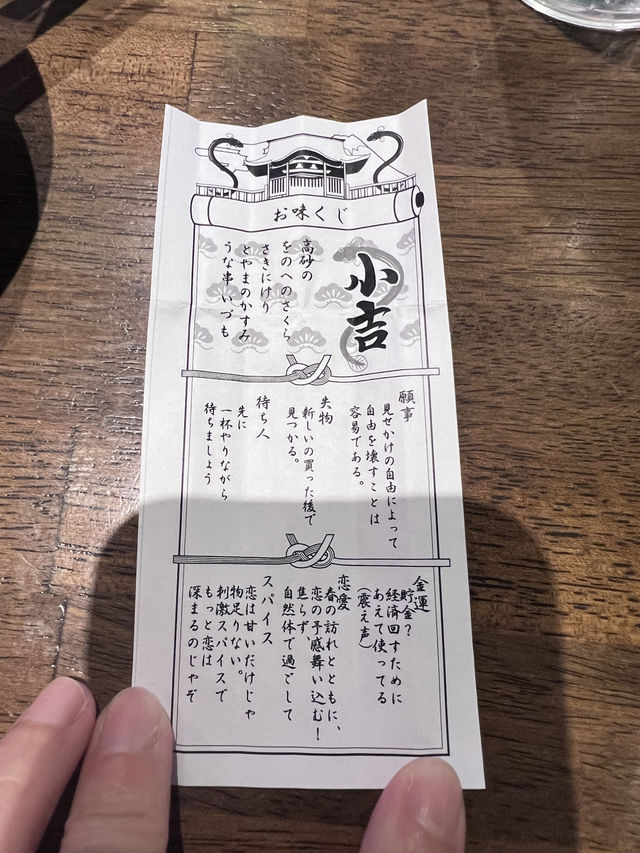 お味くじ
小吉
高砂の
をのへのさくら
さきにけり
とやまのかすみ
うな串いづも
願事
見せかけの自由によって
自由を壊すことは
容易である。
失物
新しいの買った後で
見つかる。
待ち人
先に
一杯やりながら
待ちましょう
金運
貯金?
経済回すために
あえて使ってる
(震え声)
恋愛
春の訪れとともに、
恋の予感舞い込む!
焦らず、
自然体で過ごして
スパイス
恋は甘いだけじゃ
物足りない。
刺激スパイスで
もっと恋は
深まるのじゃぞ